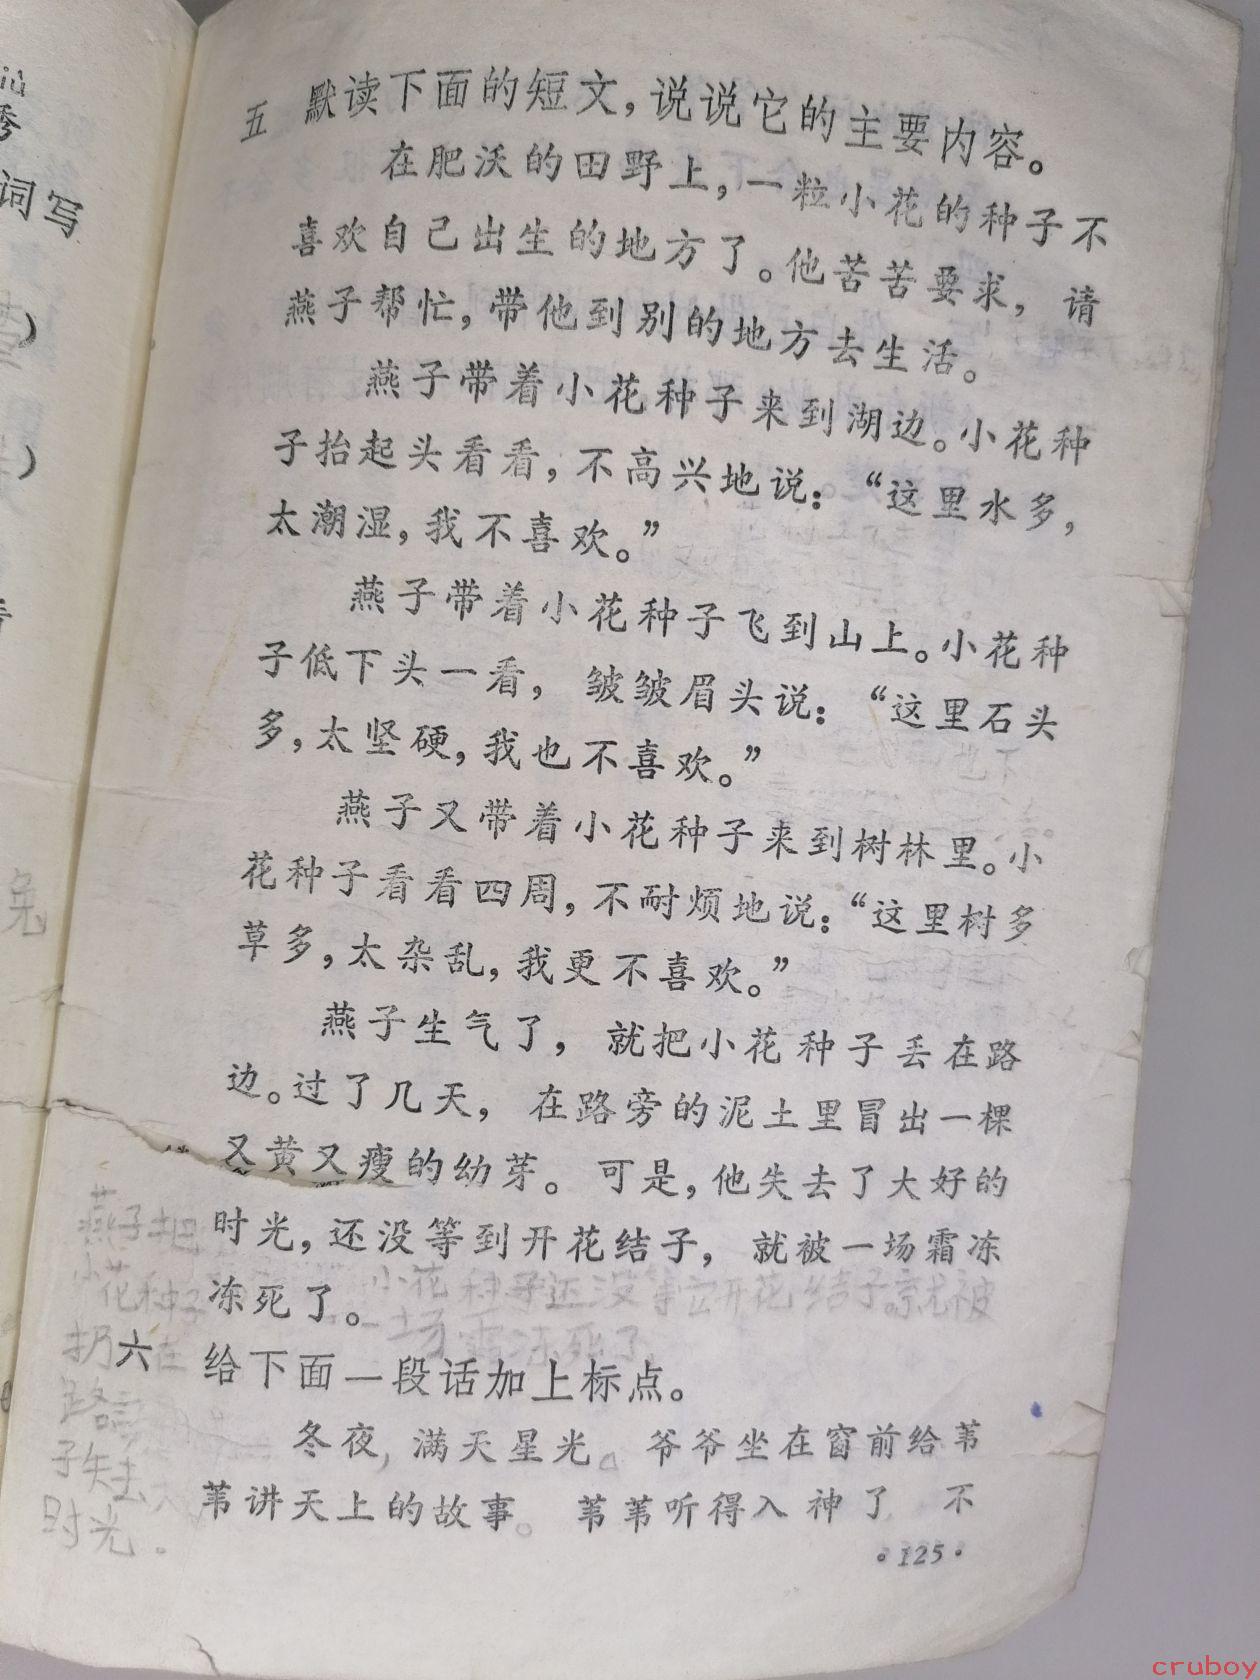 秀
词写
）
）
兔
五 默读下面的短文，说说它的主要内容。
在肥沃的田野上，一粒小花的种子不
喜欢自己出生的地方了。他苦苦要求，请
燕子帮忙，带他到别的地方去生活。
燕子带着小花种子来到湖边。小花种
子抬起头看看，不高兴地说：“这里水多，
太潮湿，我不喜欢。”
燕子带着小花种子飞到山上。小花种
子低下头一看，皱皱眉头说：“这里石头
多，太坚硬，我也不喜欢。”
燕子又带着小花种子来到树林里。小
花种子看看四周，不耐烦地说：“这里树多
草多，太杂乱，我更不喜欢。”
燕子生气了，就把小花种子丢在路
边。过了几天，在路旁的泥土里冒出一棵
又黄又瘦的幼芽。可是，他失去了大好的
时光，还没等到开花结子，就被一场霜冻
冻死了。
小花种子还没等开花结子就被
一场霜冻死了
燕子把
小花种子
扔在
路
子失去大
时光。
六 给下面一段话加上标点。
冬夜，满天星光。爷爷坐在窗前给苇
苇讲天上的故事。苇苇听得入神了 不
·125·
cruboy